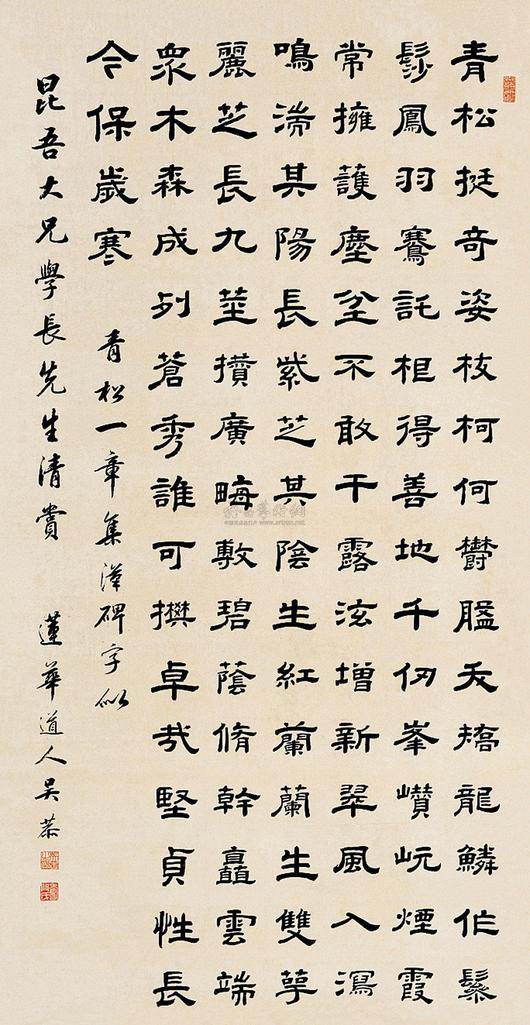 青松挺奇姿枝柯何欝盤夭矯龍鱗作鬖
髿鳳羽鶱託根得善地千仞峯巑岏煙霞
常擁護塵坌不敢干露泫增新翠風入瀉
鳴湍其陽長紫芝其陰生紅蘭蘭生雙萼
麗芝長九莖攢廣畮敷碧蔭脩幹矗雲端
眾木森成列蒼秀誰可攀卓哉堅貞性長
令保歲寒
青松一章集漢碑字似
昆吾大兄學長先生清賞 蓮華道人吳